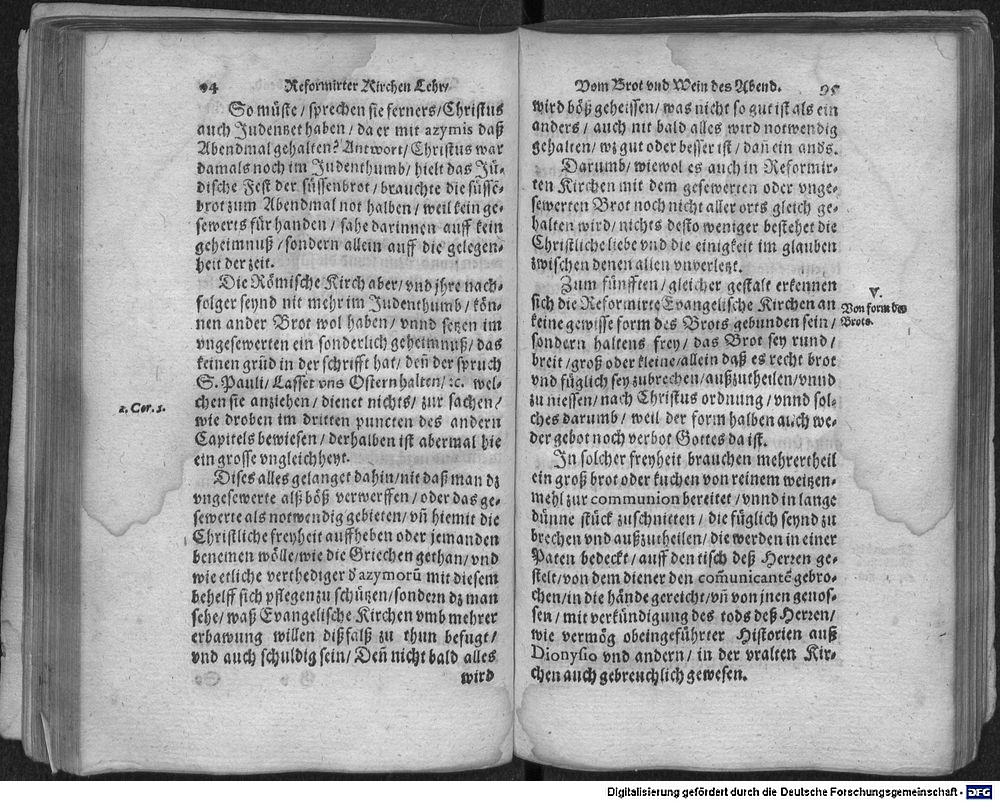 94 Reformirter Kirchen Lehr/
So müste / sprechen sie ferners / Christus
auch Judentzet haben / da er mit azymis daß
Abendmal gehalten? Antwort / Christus war
damals noch im Judenthumb / hielt das Jü-
dische Fest der süssenbrot / brauchte die süsse-
brot zum Abendmal not halben / weil kein ge-
sewerts für handen / sahe darinnen auff kein
geheimnuß / sondern allein auff die gelegen-
heit der zeit.
Die Römische Kirch aber / vnd jhre nach-
folger seynd nit mehr im Judenthumb / kön-
nen ander Brot wol haben / vnnd setzen im
vngesewerten ein sonderlich geheimnuß / das
keinen grūd in der schrifft hat / deñ der spruch
S. Pauli / Lasset vns Ostern halten / ꝛc. wel-
chen sie anziehen / dienet nichts / zur sachen /
1. Cor. 5.
wie droben im dritten puncten des andern
Capitels bewiesen / derhalben ist abermal hie
ein grosse vngleichheyt.
Dises alles gelanget dahin / nit daß man dz
vngesewerte alß böß verwerffen / oder das ge-
sewerte als notwendig gebieten / vñ hiemit die
Christliche freyheit auffheben oder jemanden
benemen wölle / wie die Griechen gethan / vnd
wie etliche verthediger d' azymorū mit diesem
behelff sich pflegen zu schützen / sondern dz man
sehe / waß Evangelische Kirchen vmb mehrer
erbawung willen dißfalß zu thun befugt /
vnd auch schuldig sein / Deñ nicht bald alles
wird
Vom Brot vnd Wein des Abend. 95
wird böß geheissen / was nicht so gut ist als ein
anders / auch nit bald alles wird notwendig
gehalten / wz gut oder besser ist / dañ ein ands.
Darumb / wiewol es auch in Reformir-
ten Kirchen mit dem gesewerten oder vnge-
sewerten Brot noch nicht aller orts gleich ge-
halten wird / nichts desto weniger bestehet die
Christliche liebe vnd die einigkeit im glauben
zwischen denen allen vnverletzt.
Zum fünfften / gleicher gestalt erkennen
sich die Reformirte Evangelische Kirchen an
keine gewisse form des Brots gebunden sein /
V.
Von form des
Brots.
sondern haltens frey / das Brot sey rund /
breit / groß oder kleine / allein daß es recht brot
vnd füglich sey zubrechen / außzutheilen / vnnd
zu niessen / nach Christus ordnung / vnnd sol-
ches darumb / weil der form halben auch we-
der gebot noch verbot Gottes da ist.
In solcher freyheit brauchen mehrertheil
ein groß brot oder kuchen von reinem weitzen-
mehl zur communion bereitet / vnnd in lange
dünne stück zuschnitten / die füglich seynd zu
brechen vnd außzutheilen / die werden in einer
Paten bedeckt / auff den tisch deß Herren ge-
stelt / von dem diener den com̃unicantē gebro-
chen / in die hände gereicht / vñ von jnen genos-
sen / mit verkündigung des tods deß Herren /
wie vermög obeingeführter Historien auß
Dionysio vnd andern / in der vralten Kir-
chen auch gebreuchlich gewesen.
Digitalisierung gefördert durch die Deutsche Forschungsgemeinschaft - DFG